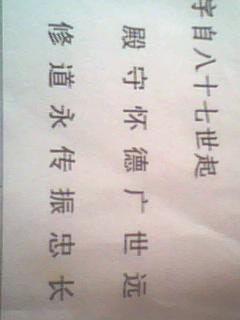 字自八十七世起
殿守怀德广世远
修道永传振忠长